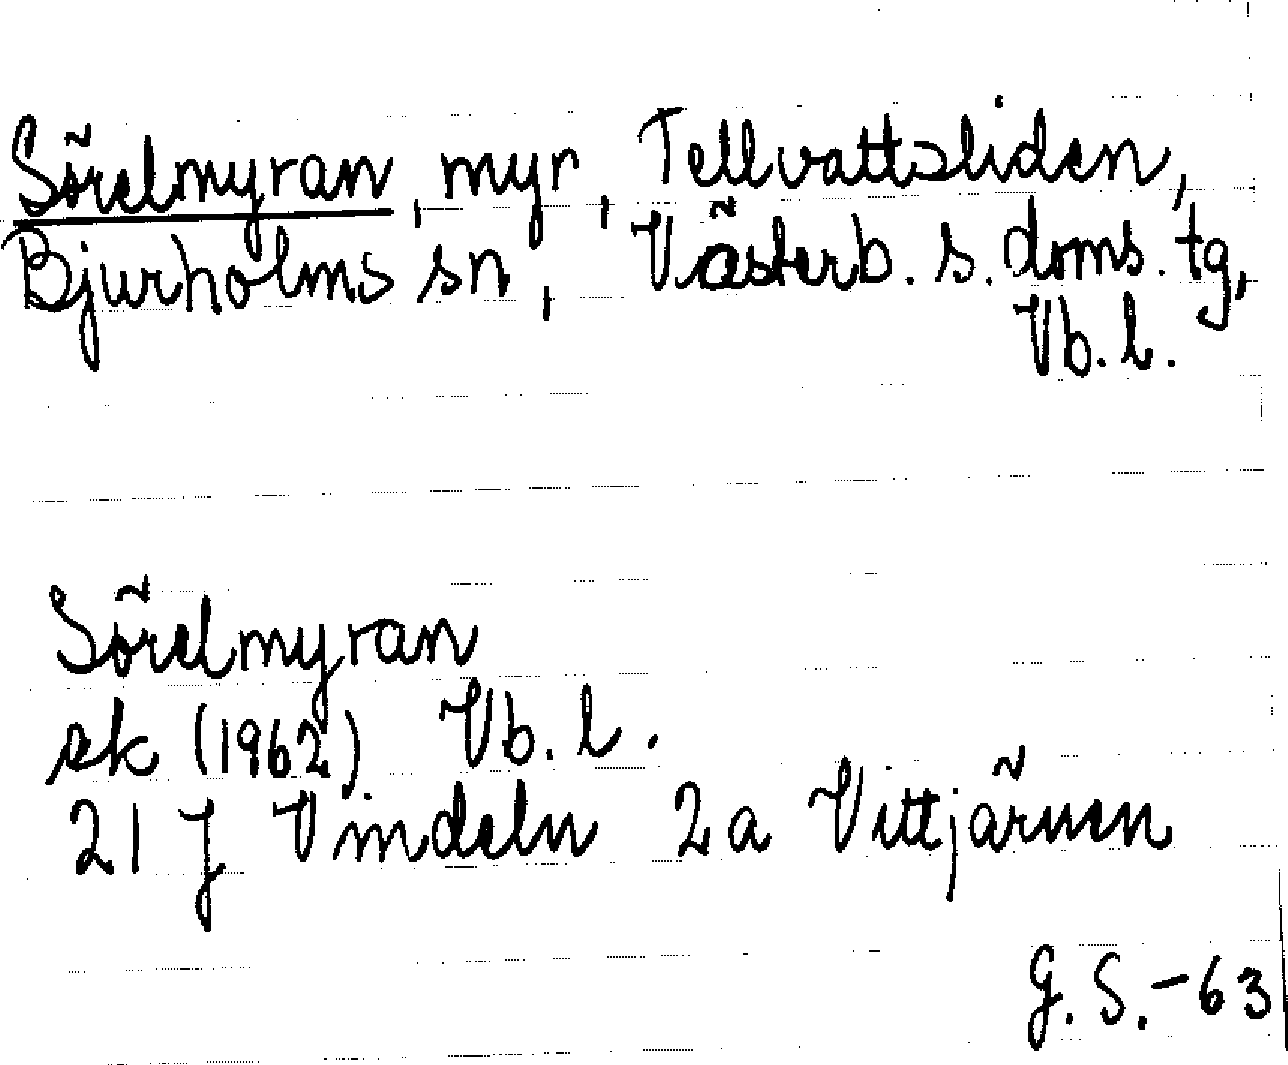 Sörelmyran, myr, Tellvattsliden,
Bjurholms sn, Västerb. s. doms. tg,
Vb. l.
Sörelmyran
ek (1962) Vb. l.
21 J Vindeln 2a Vittjärnen
G. S. -63